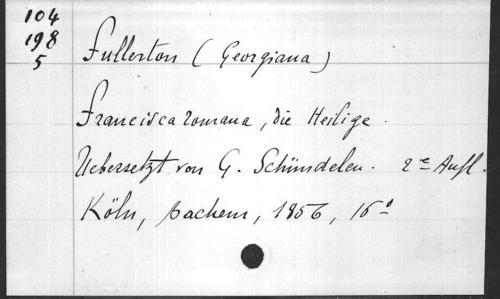 104
198
5
Fullerton (Georgiana)
Francisca romana, die Heilige.
Uebersetzt von G. Schündelen. 2e Aufl.
Köln, Bachem, 1856, 16°